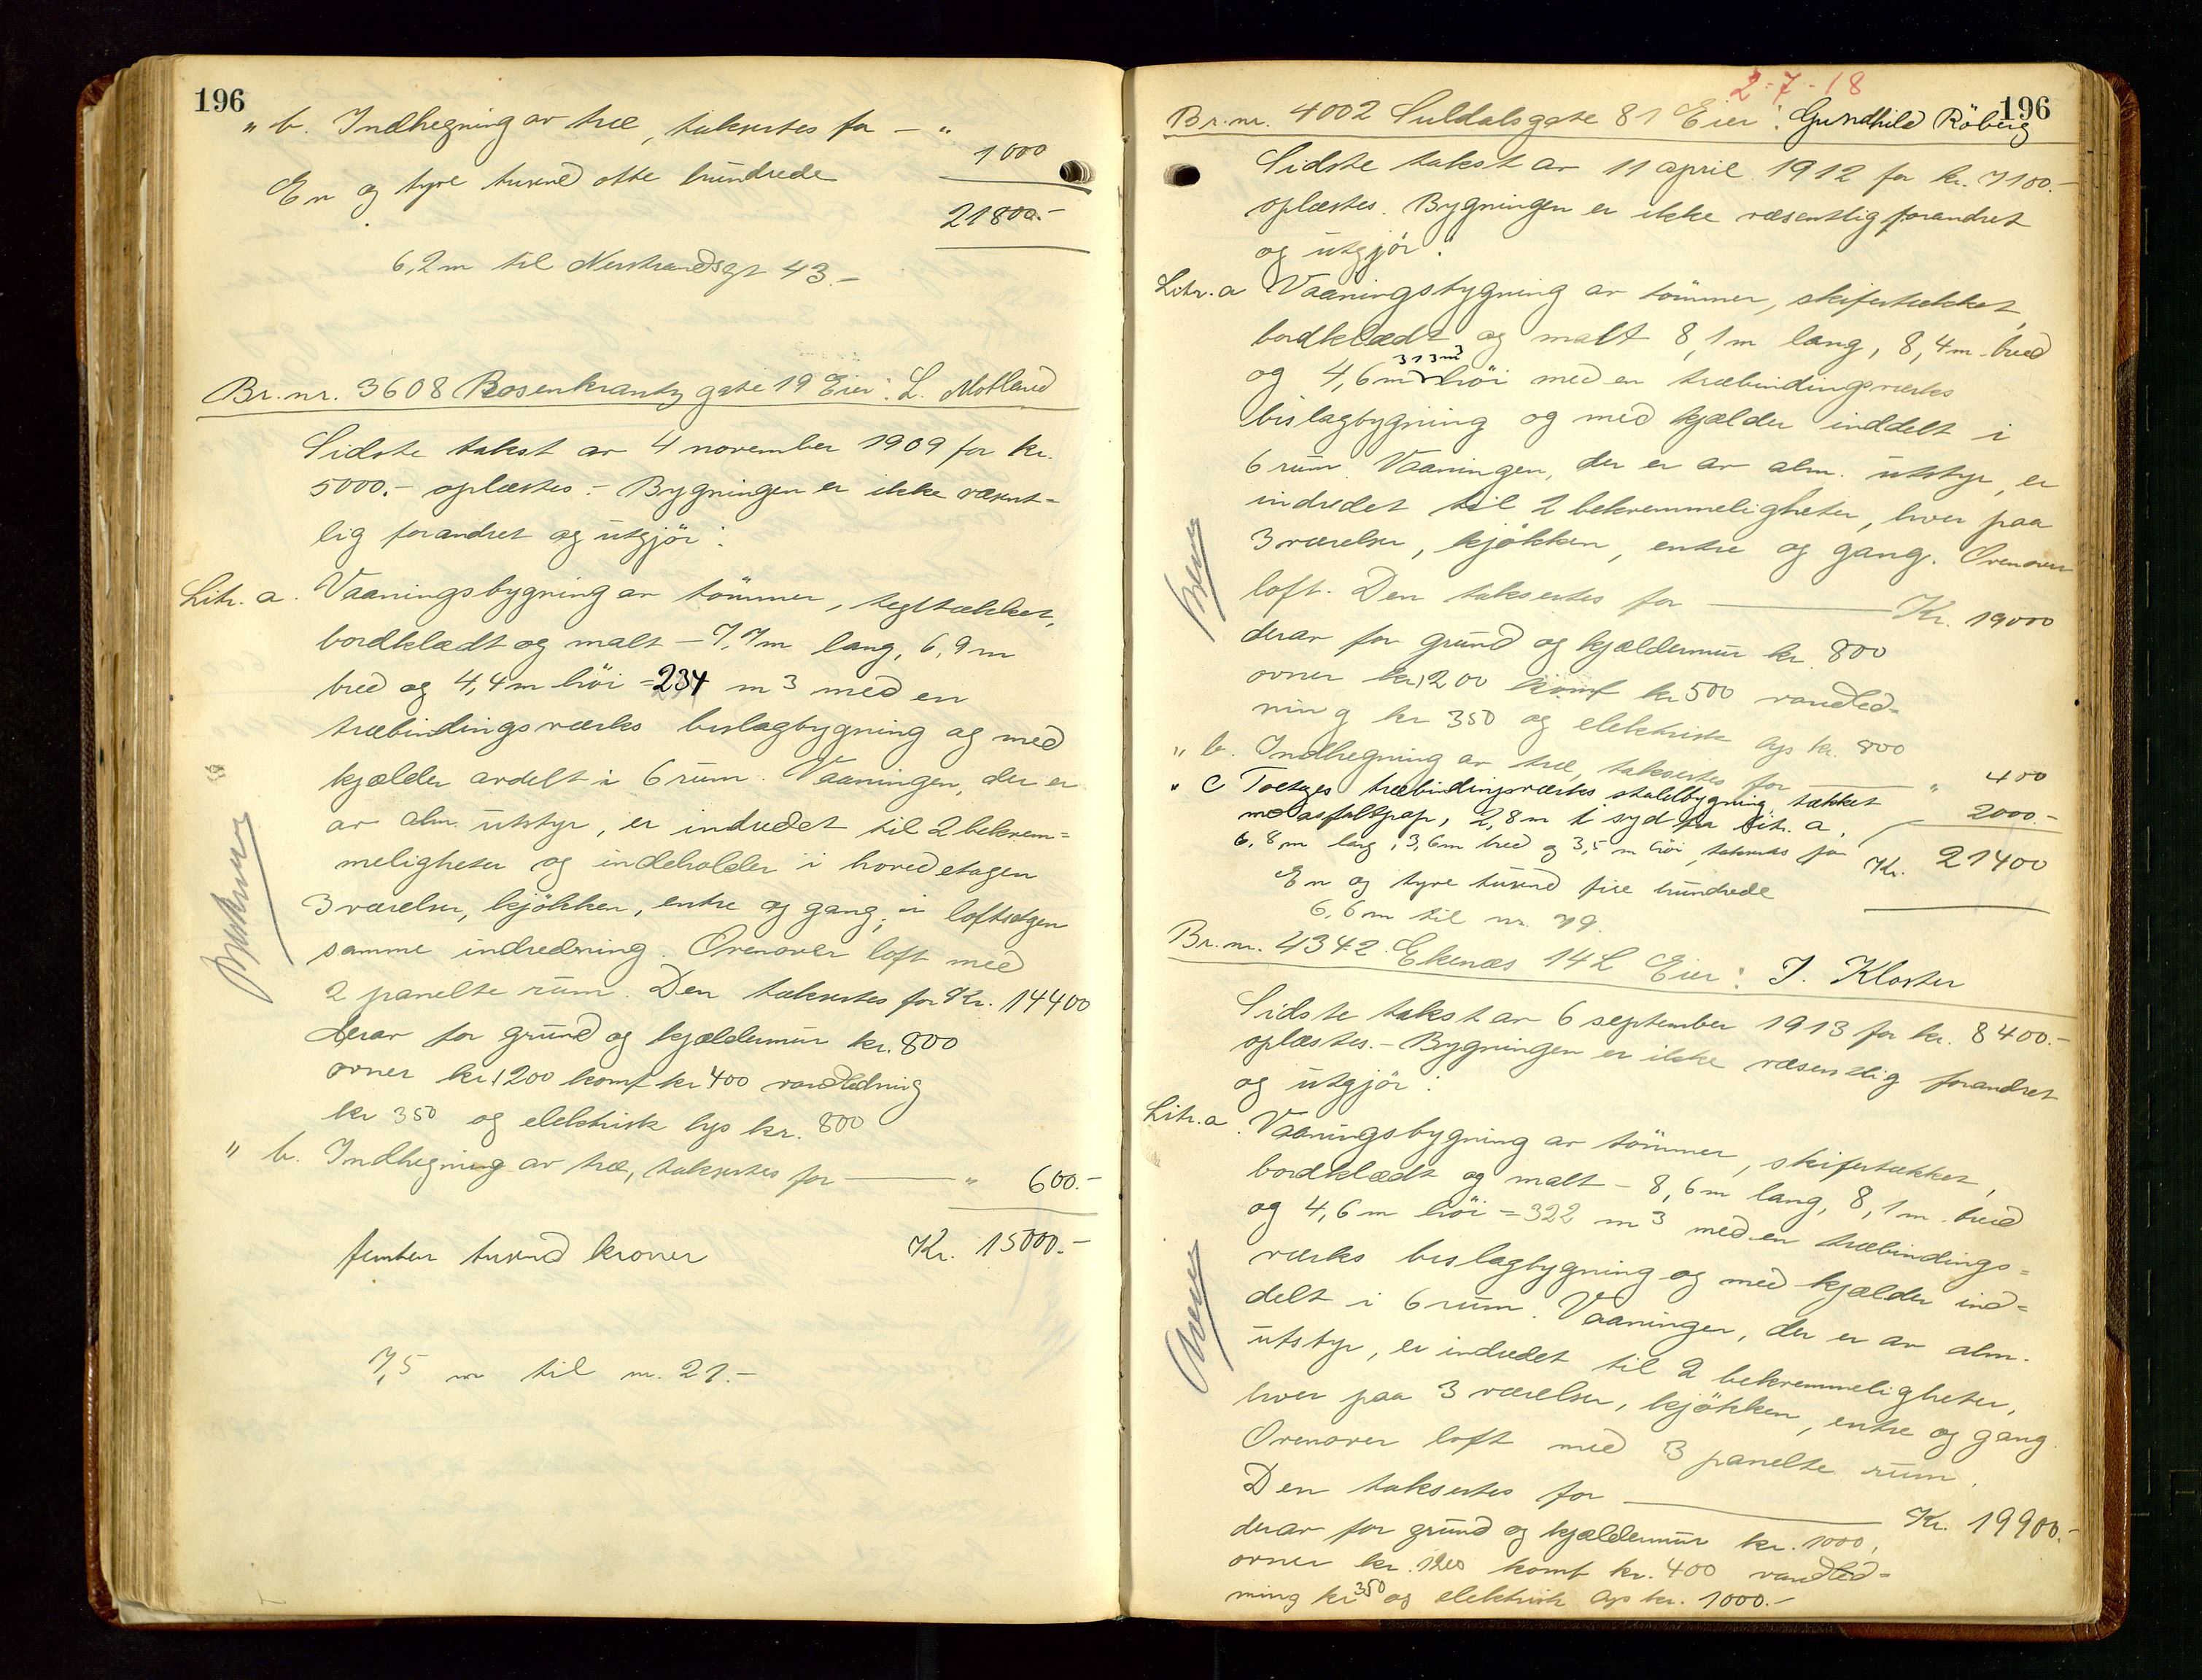 196
" b. Indhegning av træ, taksertes for — "
1000
En og tyve tusend otte hundrede
21800.-
6,2 m til Nerstrandsgt 43.-
Br. nr. 3608 Rosenkrantz gate 19 Eier: L. Motland
Sidste takst av 4 november 1909 for kr.
5000.- oplæstes.- Bygningen er ikke væsent-
lig forandret og utgjör:
Litr. a. Vaaningsbygning av tömmer, tegltækket,
bordklædt og malt - 7,7m lang, 6,9m
bred og 4,4m höi = 234 m3 med en
træbindingsværks bislagbygning og med
kjælder avdelt i 6 rum. Vaaningen, der er
av alm. utstyr, er indredet til 2 bekvem=
meligheter og indeholder i hovedetagen
3 værelser, kjökken, entre og gang, i loftsetagen
samme indredning. Ovenover loft med
2 panelte rum. Den taksertes for Kr. 14400
derav for grund og kjældermur kr. 800
ovner kr. 1200 komf kr 400 vandledning
kr 350 og elektrisk lys kr. 800
" b. Indhegning av træ, taksertes for — " 600.-
femten tusend kroner Kr. 15000.-
7,5 m til nr. 21.-
2-7-18
196
Br. nr. 4002 Suldalsgate 81 Eier: Gundhild Röberg
Sidste takst av 11 april 1912 for kr. 7100.-
oplæstes. Bygningen er ikke væsentlig forandret
og utgjör:
Litr. a Vaaningsbygning av tömmer, skifertækket,
bordklædt og malt 8,1m lang, 8,4m bred
313m3
og 4,6m höi med en træbindingsværks
bislagbygning og med kjælder inddelt i
6 rum. Vaaningen, der er av alm. utstyr, er
indredet til 2 bekvemmeligheter, hver paa
3 værelser, kjökken, entre og gang. Ovenover
loft. Den taksertes for — Kr. 19000
derav for grund og kjældermur kr. 800
ovner kr. 1200 komf kr 500 vandled-
ning kr 350 og elektrisk lys kr. 800
" b. Indhegning av træ, taksertes for — " 400
" c Toetages træbindingsværks staldbygning tækket
med asfaltpap, 2,8m i syd for litr. a. 2000.-
6,8m lang, 3,6m bred og 3,5 m höi, taksertes for
Kr. 21400
En og tyve tusend fire hundrede
6,6m til nr. 79.
Br. nr. 4342. Ekenæs 14L Eier: J. Kloster
Sidste takst av 6 september 1913 for kr. 8400.-
oplæstes.- Bygningen er ikke væsentlig forandret
og utgjör:
Litr. a. Vaaningsbygning av tömmer, skifertækket,
bordklædt og malt - 8,6m lang, 8,1m bred
og 4,6m höi = 322 m3 med en træbindings=
værks bislagbygning og med kjælder ind=
delt i 6 rum. Vaaningen, der er av alm.
utstyr, er indredet til 2 bekvemmeligheter,
hver paa 3 værelser, kjökken, entre og gang.
Ovenover loft med 3 panelte rum.
Den taksertes for — Kr. 19900.-
derav for grund og kjældermur kr. 1000,
ovner kr. 1200 komf kr. 400 vandled-
ning kr 350 og elektrisk lys kr. 1000.-